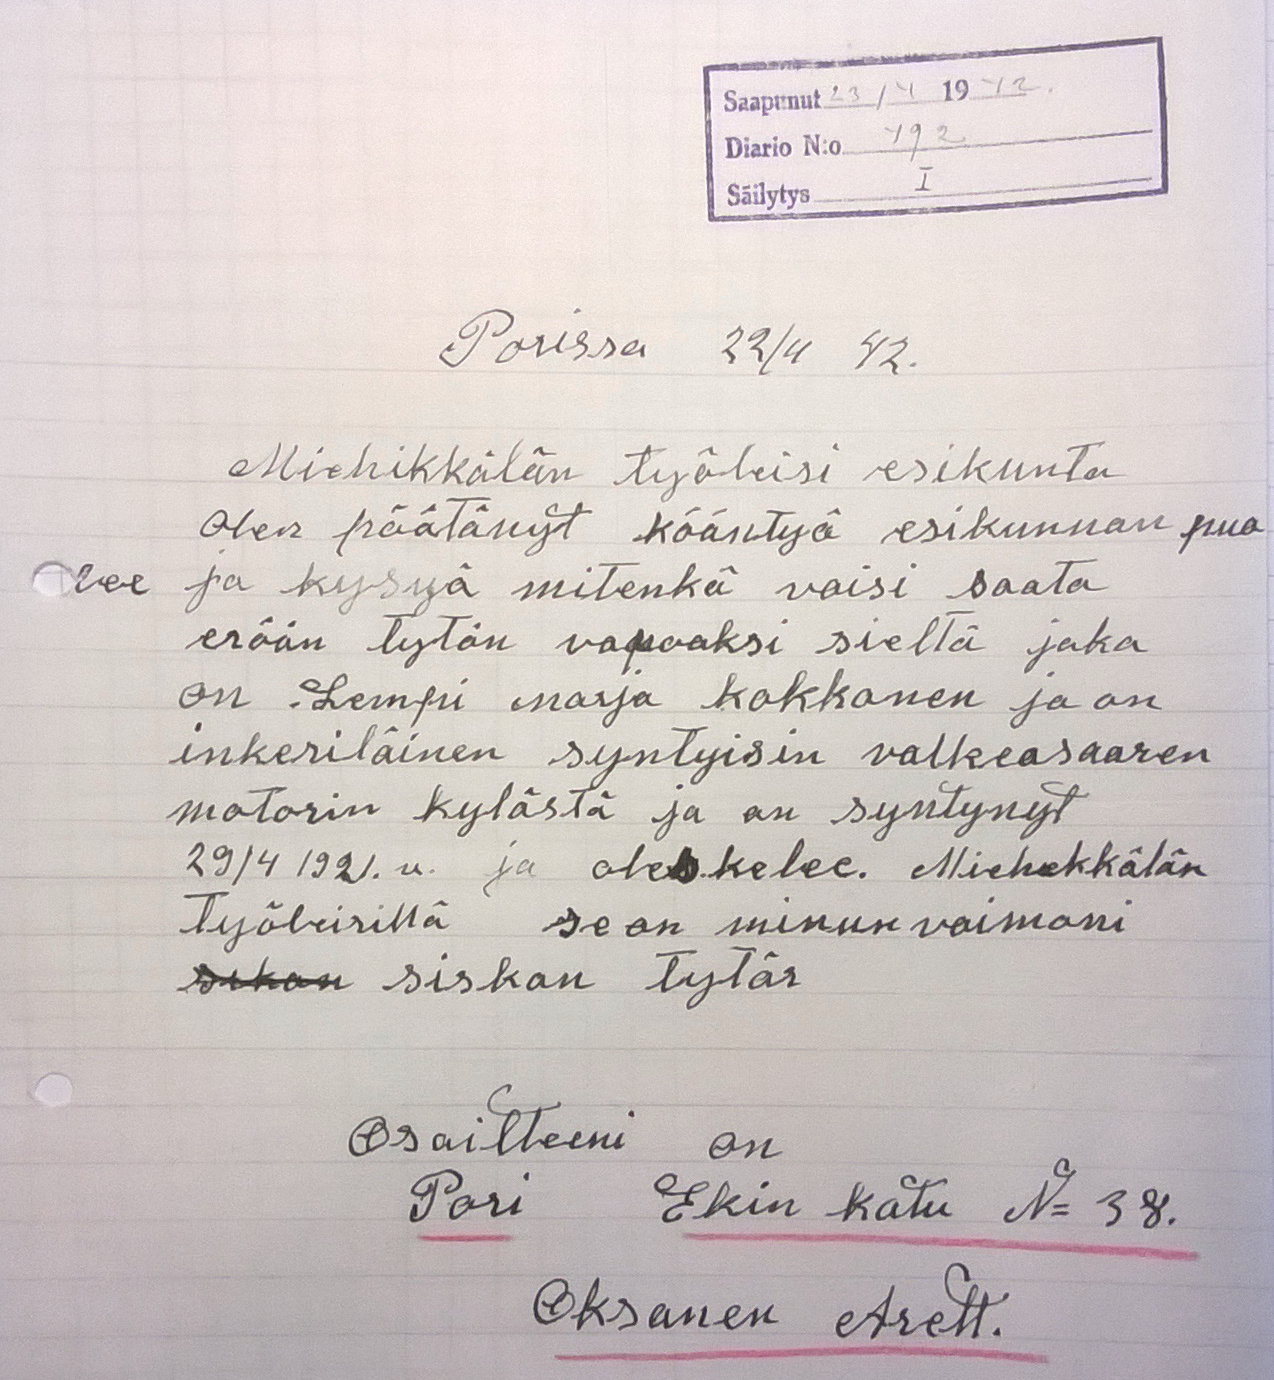 Saapunut 23/4 1942.
Diario N:o 492
Säilytys I
Porissa 22/4 42.
Miehikkälän työleisi esikunta
olen päätänyt kääntyä esikunnan puo
lee ja kysyä mitenkä voisi saata
erään tytön vapaaksi sieltä joka
on Lempi marja kokkonen ja on
inkeriläinen syntyisin valkeasaaren
motorin kylästä ja on syntynyt
29/4 1921. u. ja oleskelee. Miehekkälän
työleirillä se on minun vaimoni
sikon siskon tytär
Osaitteeni on
Pori Ekin katu N= 38.
Oksanen Arett.